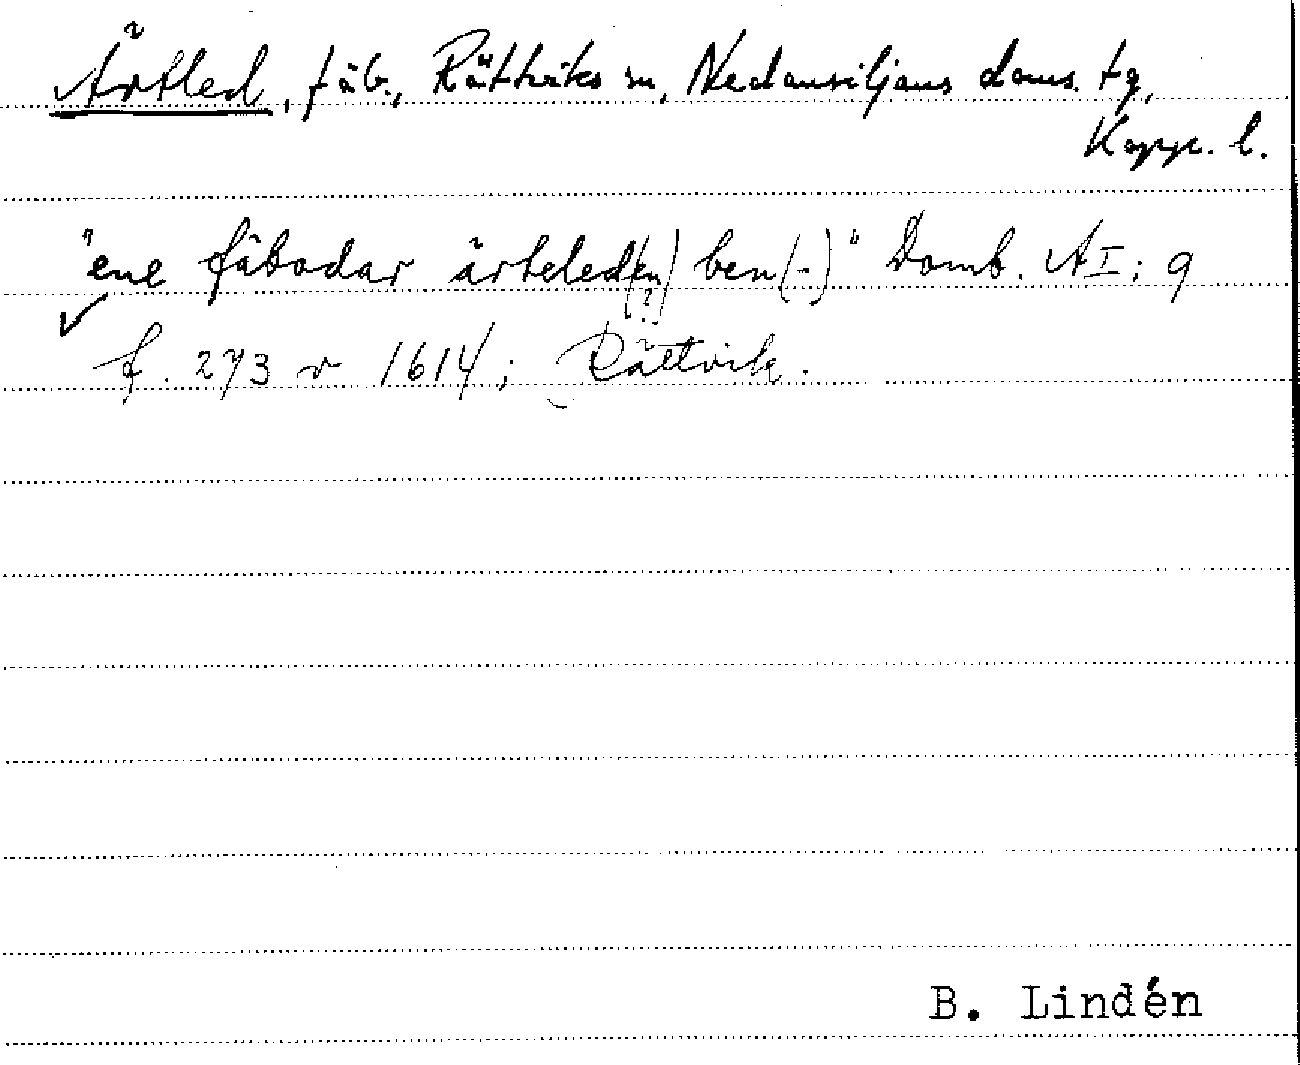 Ärtled, fäb., Rättviks sn, Nedansiljans doms. tg,
Kopp. l.
"ene fäbodar ärteled(en) ben(-)" Domb. AI: 9
(?)
f. 273 v 1614; Rättvik.
B. Lindén